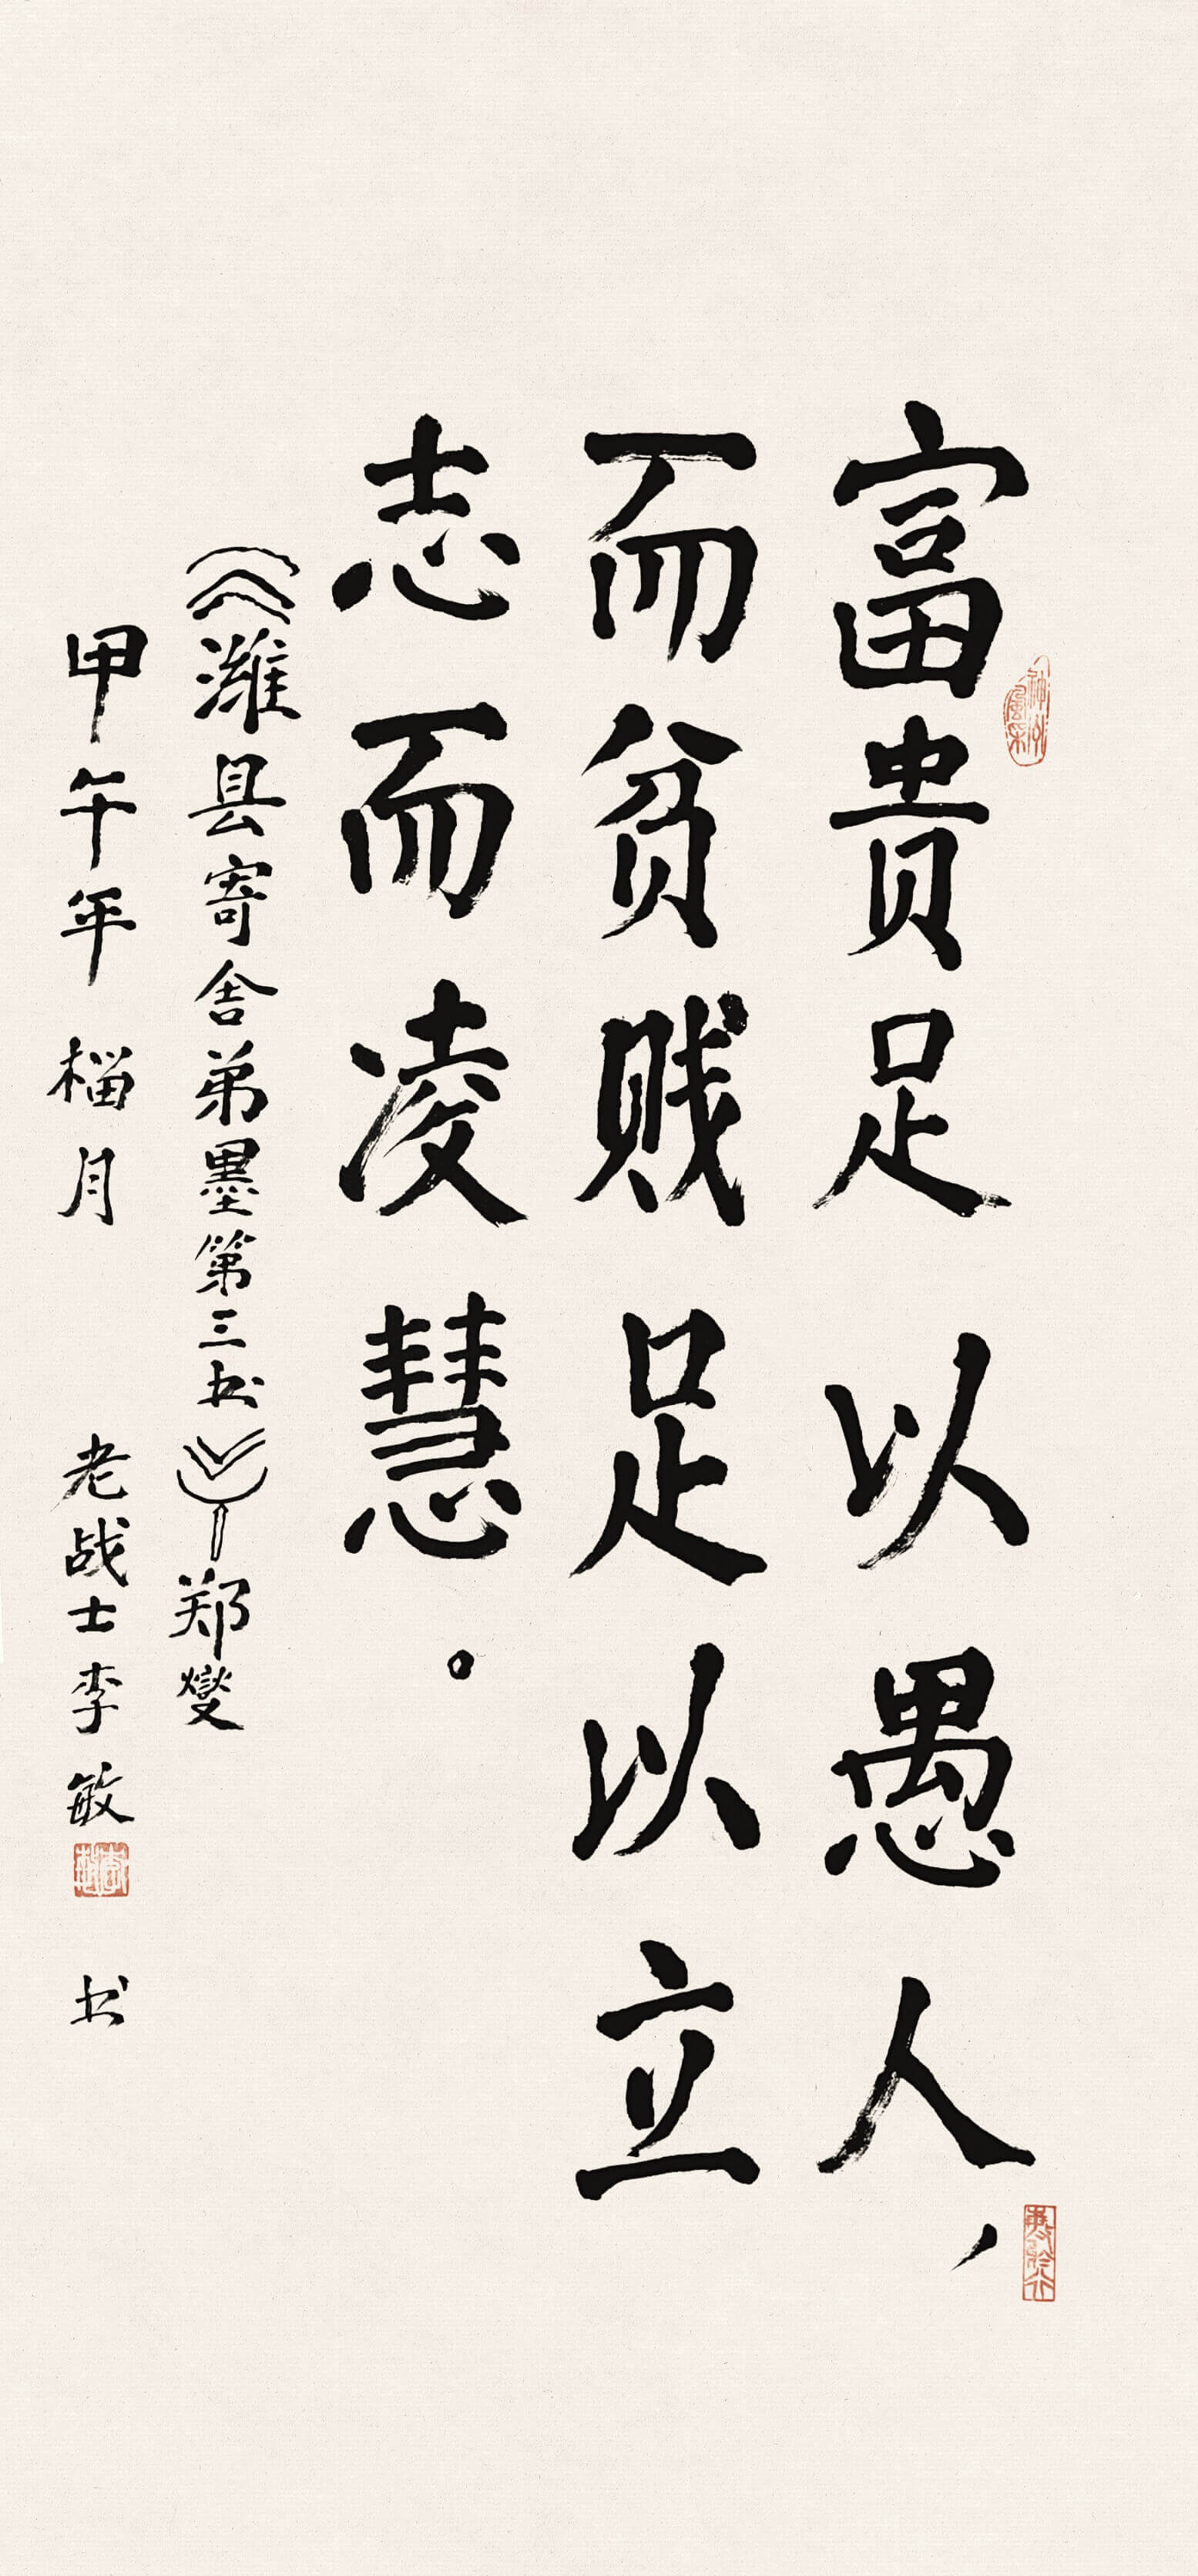 富贵足以愚人，
而贫贱足以立
志而凌慧。
《潍县寄舍弟墨第三书》—郑燮
甲午年榴月 老战士李敏 书